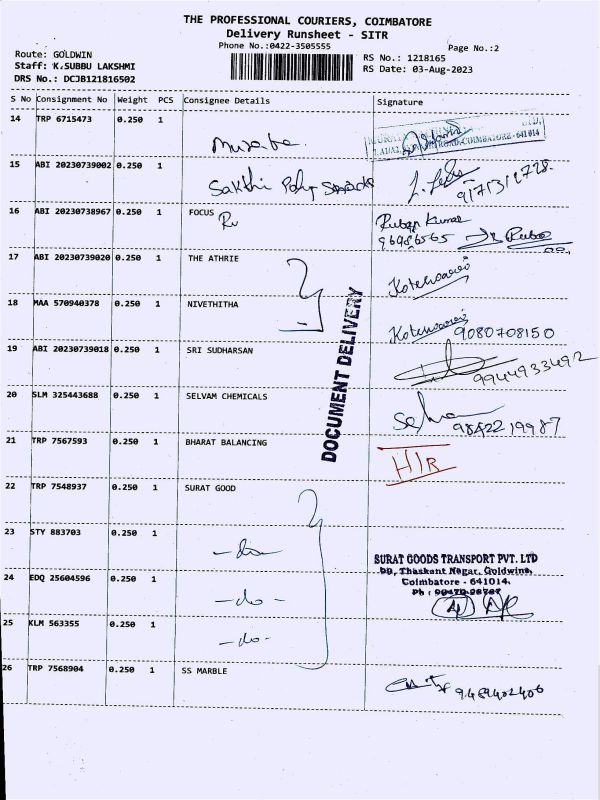 THE PROFESSIONAL COURIERS, COIMBATORE
Delivery Runsheet - SITR
Phone No.:0422-3505555
Page No.:2
Route: GOLDWIN
Staff: K.SUBBU LAKSHMI
DRS No.: DCJB121816502
RS No.: 1218165
RS Date: 03-Aug-2023
S No Consignment No Weight PCS Consignee Details Signature
14 TRP 6715473 0.250 1
COIMBATORE - 641014
15 ABI 20230739002 0.250 1
Sakthi Poly
16 ABI 20230738967 0.250 1 FOCUS Ruban Kumar
17 ABI 20230739020 0.250 1 THE ATHRIE Koteswari
18 MAA 570940378 0.250 1 NIVETHITHA
Koteswari 9080708150
19 ABI 20230739018 0.250 1 SRI SUDHARSAN
9944933492
DOCUMENT DELIVERY
20 SLM 325443688 0.250 1 SELVAM CHEMICALS
9842219987
21 TRP 7567593 0.250 1 BHARAT BALANCING
H/R
22 TRP 7548937 0.250 1 SURAT GOOD
23 STY 883703 0.250 1
-do-
SURAT GOODS TRANSPORT PVT. LTD
DD, Thaskent Nagar, Goldwins,
Coimbatore - 641014.
24 EDQ 25604596 0.250 1
-do-
25 KLM 563355 0.250 1
-do-
26 TRP 7568904 0.250 1 SS MARBLE